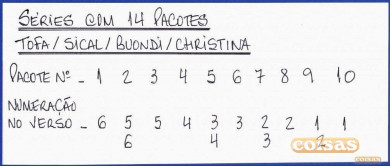 SÉRIES COM 14 PACOTES
TOFA/SICAL/BUONDI/CHRISTINA
PACOTE Nº - 1 2 3 4 5 6 7 8 9 10
NUMERAÇÃO
NO VERSO - 6 5 5 4 3 3 2 2 1 1
6 4 3 2
coisas
coisas